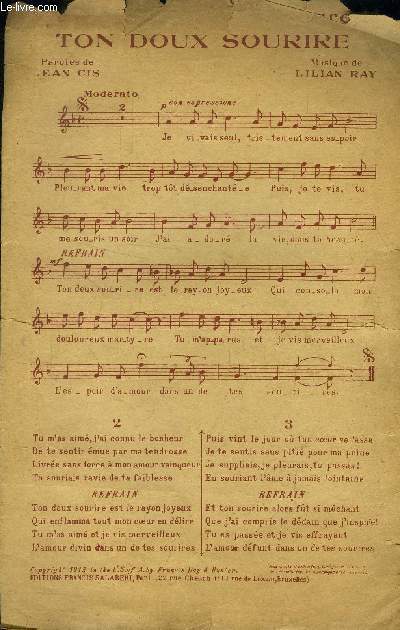 TON DOUX SOURIRE
Paroles de
JEAN CIS
Musique de
LILIAN RAY
Moderato
2
p con espressione
Je vi_vais seul, tris_tement sans espoir
Pleu_rant ma vie trop tôt désenchanté_e Puis, je te vis, tu
me souris un soir J'ai a_do_ré la vie, dans ta beauté.
REFRAIN
mf
Ton doux souri_re est le ray_on joy_eux Qui conso_la mon
douloureux marty_re Tu m'appa_rus et je vis merveilleux
L'es_poir d'amour dans un de tes sou_ri_res.
2
Tu m'as aimé, j'ai connu le bonheur
De te sentir émue par ma tendresse
Livrés sans force à mon amour vainqueur
Tu souriais ravie de ta faiblesse
REFRAIN
Ton doux sourire est le rayon joyeux
Qui enflamma tout mon cœur en délire
Tu m'as aimé et je vis merveilleux
L'amour divin dans un de tes sourires.
3
Puis vint le jour où ton cœur se lasse
Je te sentis sans pitié pour ma peine
Je suppliais, je pleurais, tu passas!
En souriant l'âme à jamais lointaine
REFRAIN
Et ton sourire alors fût si méchant
Que j'ai compris le dédain que j'inspire!
Tu es passée et je vis effrayant
L'amour défunt dans un de tes sourires
Copyright 1918 in the U.S. of A. by Francis Day & Hunter.
EDITIONS FRANCIS SALABERT, Paris, 22 rue Chauchat